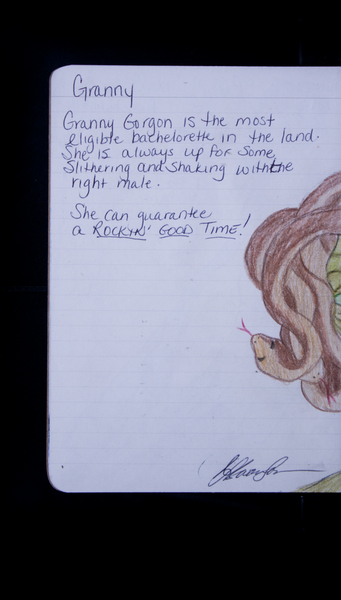 Granny
Granny Gorgon is the most
eligible bachelorette in the land.
She is always up for some
Slithering and Shaking with the
right male.
She can guarantee
a ROCKYN' GOOD TIME!